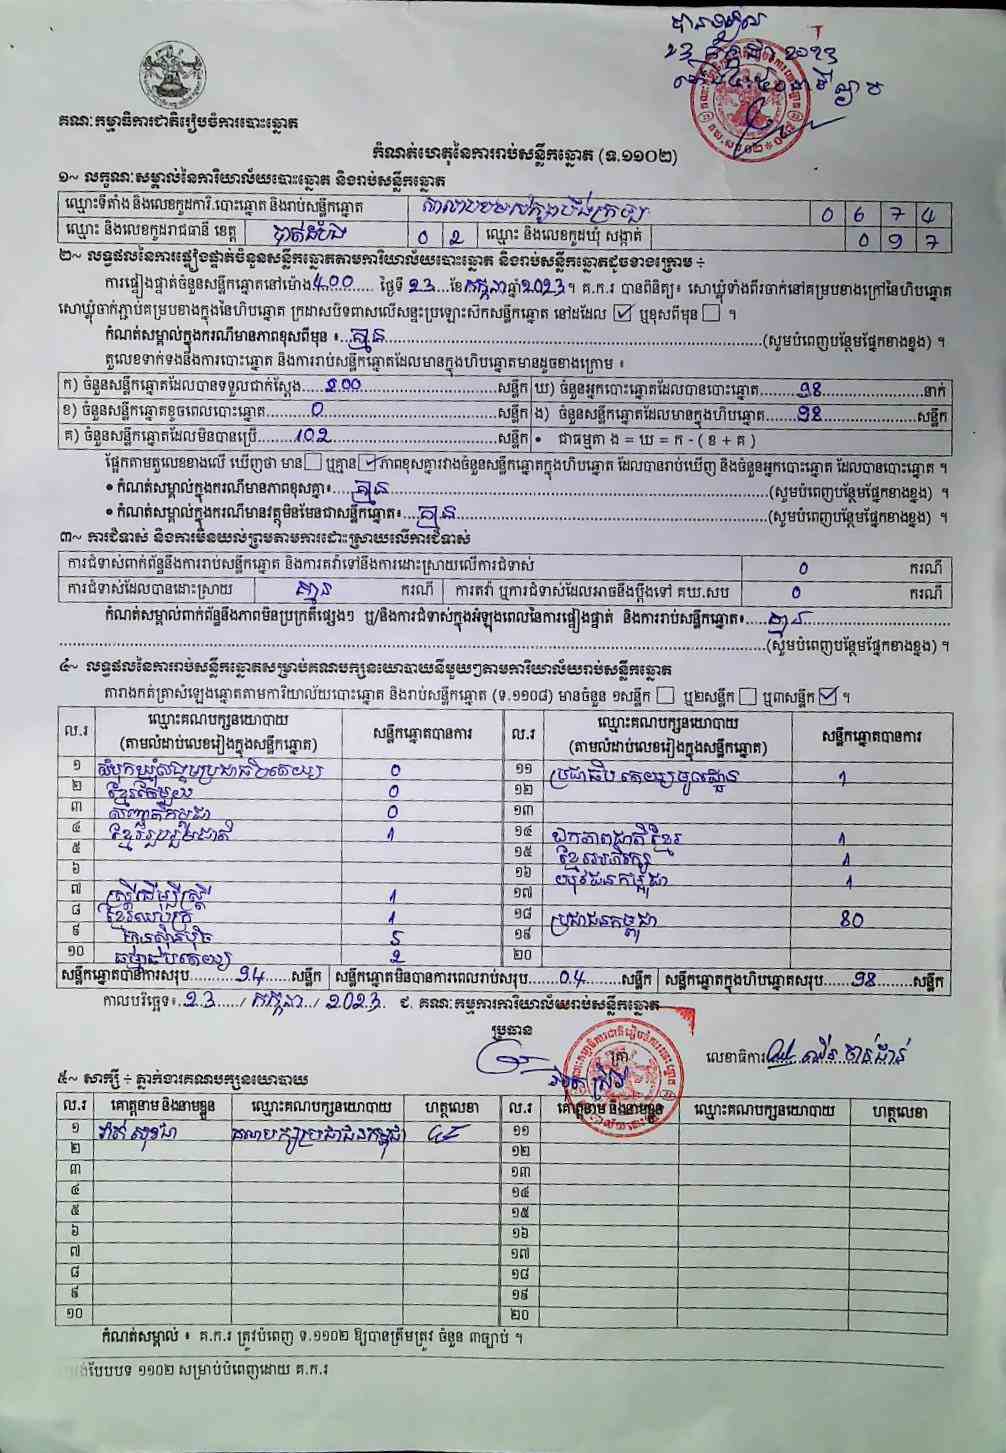 បានទទួល
២៣ កក្កដា ២០២៣
គណៈកម្មាធិការជាតិរៀបចំការបោះឆ្នោត
កំណត់ហេតុនៃការរាប់សន្លឹកឆ្នោត (ទ.១១០២)
១~ លក្ខណៈសម្គាល់នៃការិយាល័យបោះឆ្នោត និងរាប់សន្លឹកឆ្នោត
ឈ្មោះទីតាំង និងលេខកូដការិ.បោះឆ្នោត និងរាប់សន្លឹកឆ្នោត 0 6 7 4
ឈ្មោះ និងលេខកូដរាជធានី ខេត្ត បាត់ដំបង 0 2 ឈ្មោះ និងលេខកូដឃុំ សង្កាត់ 0 9 7
២~ លទ្ធផលនៃការផ្ទៀងផ្ទាត់ចំនួនសន្លឹកឆ្នោតតាមការិយាល័យបោះឆ្នោត និងរាប់សន្លឹកឆ្នោតដូចខាងក្រោម ÷
ការផ្ទៀងផ្ទាត់ចំនួនសន្លឹកឆ្នោតនៅម៉ោង 4.00 ថ្ងៃទី 23 ខែ កក្កដា ឆ្នាំ 2023 ។ គ.ក.រ បានពិនិត្យ៖ សោឃ្លុំទាំងពីរចាក់នៅគម្របខាងក្រៅនៃហិបឆ្នោត
សោឃ្លុំចាក់ភ្ជាប់គម្របខាងក្នុងនៃហិបឆ្នោត ក្រដាសបិទពាសលើសន្ទះប្រឡោះសឹកសន្លឹកឆ្នោត នៅដដែល ☑ ឬខុសពីមុន ☐ ។
កំណត់សម្គាល់ក្នុងករណីមានភាពខុសពីមុន ៖ គ្មាន (សូមបំពេញបន្ថែមផ្នែកខាងខ្នង) ។
តួលេខទាក់ទងនឹងការបោះឆ្នោត និងការរាប់សន្លឹកឆ្នោតដែលមានក្នុងហិបឆ្នោតមានដូចខាងក្រោម ៖
ក) ចំនួនសន្លឹកឆ្នោតដែលបានទទួលជាក់ស្តែង 200 សន្លឹក ឃ) ចំនួនអ្នកបោះឆ្នោតដែលបានបោះឆ្នោត 98 នាក់
ខ) ចំនួនសន្លឹកឆ្នោតខូចពេលបោះឆ្នោត 0 សន្លឹក ង) ចំនួនសន្លឹកឆ្នោតដែលមានក្នុងហិបឆ្នោត 98 សន្លឹក
គ) ចំនួនសន្លឹកឆ្នោតដែលមិនបានប្រើ 102 សន្លឹក • ជាធម្មតា ង = ឃ = ក - ( ខ + គ )
ផ្អែកតាមតួលេខខាងលើ ឃើញថា មាន ☐ ឬគ្មាន ☑ ភាពខុសគ្នារវាងចំនួនសន្លឹកឆ្នោតក្នុងហិបឆ្នោត ដែលបានរាប់ឃើញ និងចំនួនអ្នកបោះឆ្នោត ដែលបានបោះឆ្នោត ។
• កំណត់សម្គាល់ក្នុងករណីមានភាពខុសគ្នា៖ គ្មាន (សូមបំពេញបន្ថែមផ្នែកខាងខ្នង) ។
• កំណត់សម្គាល់ក្នុងករណីមានវត្ថុមិនមែនជាសន្លឹកឆ្នោត៖ គ្មាន (សូមបំពេញបន្ថែមផ្នែកខាងខ្នង) ។
៣~ ការជំទាស់ និងការមិនយល់ព្រមតាមការដោះស្រាយលើការជំទាស់
ការជំទាស់ពាក់ព័ន្ធនឹងការរាប់សន្លឹកឆ្នោត និងការតវ៉ាទៅនឹងការដោះស្រាយលើការជំទាស់ 0 ករណី
ការជំទាស់ដែលបានដោះស្រាយ គ្មាន ករណី ការតវ៉ា ឬការជំទាស់ដែលអាចនឹងប្តឹងទៅ គឃ.សប 0 ករណី
កំណត់សម្គាល់ពាក់ព័ន្ធនឹងភាពមិនប្រក្រតីផ្សេងៗ ឬ/និងការជំទាស់ក្នុងអំឡុងពេលនៃការផ្ទៀងផ្ទាត់ និងការរាប់សន្លឹកឆ្នោត៖ គ្មាន
(សូមបំពេញបន្ថែមផ្នែកខាងខ្នង) ។
៤~ លទ្ធផលនៃការរាប់សន្លឹកឆ្នោតសម្រាប់គណបក្សនយោបាយនីមួយៗតាមការិយាល័យរាប់សន្លឹកឆ្នោត
តារាងកត់ត្រាសំឡេងឆ្នោតតាមការិយាល័យបោះឆ្នោត និងរាប់សន្លឹកឆ្នោត (ទ.១១០៨) មានចំនួន ១សន្លឹក ☐ ឬ២សន្លឹក ☐ ឬ៣សន្លឹក ☑ ។
ល.រ ឈ្មោះគណបក្សនយោបាយ (តាមលំដាប់លេខរៀងក្នុងសន្លឹកឆ្នោត) សន្លឹកឆ្នោតបានការ ល.រ ឈ្មោះគណបក្សនយោបាយ (តាមលំដាប់លេខរៀងក្នុងសន្លឹកឆ្នោត) សន្លឹកឆ្នោតបានការ
១ សំបុកឃ្មុំសង្គមប្រជាធិបតេយ្យ 0 ១១ ប្រជាធិបតេយ្យមូលដ្ឋាន 1
២ ខ្មែរតែមួយ 0 ១២
៣ សញ្ជាតិកម្ពុជា 0 ១៣
៤ ខ្មែររួបរួមជាតិ 1 ១៤ ឯកភាពជាតិខ្មែរ 1
៥ ១៥ ខ្មែរអភិរក្ស 1
៦ ១៦ យុវជនកម្ពុជា 1
៧ ស្ត្រីដើម្បីស្ត្រី 1 ១៧
៨ ខ្មែរឈប់ក្រ 1 ១៨ ប្រជាជនកម្ពុជា 80
៩ ហ្វ៊ុនស៊ិនប៉ិច 5 ១៩
១០ ធម្មាធិបតេយ្យ 2 ២០
សន្លឹកឆ្នោតបានការសរុប 94 សន្លឹក សន្លឹកឆ្នោតមិនបានការពេលរាប់សរុប 04 សន្លឹក សន្លឹកឆ្នោតក្នុងហិបឆ្នោតសរុប 98 សន្លឹក
កាលបរិច្ឆេទ៖ 23 / កក្កដា / 2023 ជ. គណៈកម្មការការិយាល័យរាប់សន្លឹកឆ្នោត
ប្រធាន
លេខាធិការ
៥~ សាក្សី ÷ ភ្នាក់ងារគណបក្សនយោបាយ
ល.រ គោត្តនាម និងនាមខ្លួន ឈ្មោះគណបក្សនយោបាយ ហត្ថលេខា ល.រ គោត្តនាម និងនាមខ្លួន ឈ្មោះគណបក្សនយោបាយ ហត្ថលេខា
១ គណបក្សប្រជាជនកម្ពុជា ១១
២ ១២
៣ ១៣
៤ ១៤
៥ ១៥
៦ ១៦
៧ ១៧
៨ ១៨
៩ ១៩
១០ ២០
កំណត់សម្គាល់ ៖ គ.ក.រ ត្រូវបំពេញ ទ.១១០២ ឱ្យបានត្រឹមត្រូវ ចំនួន ៣ច្បាប់ ។
បែបបទ ១១០២ សម្រាប់បំពេញដោយ គ.ក.រ